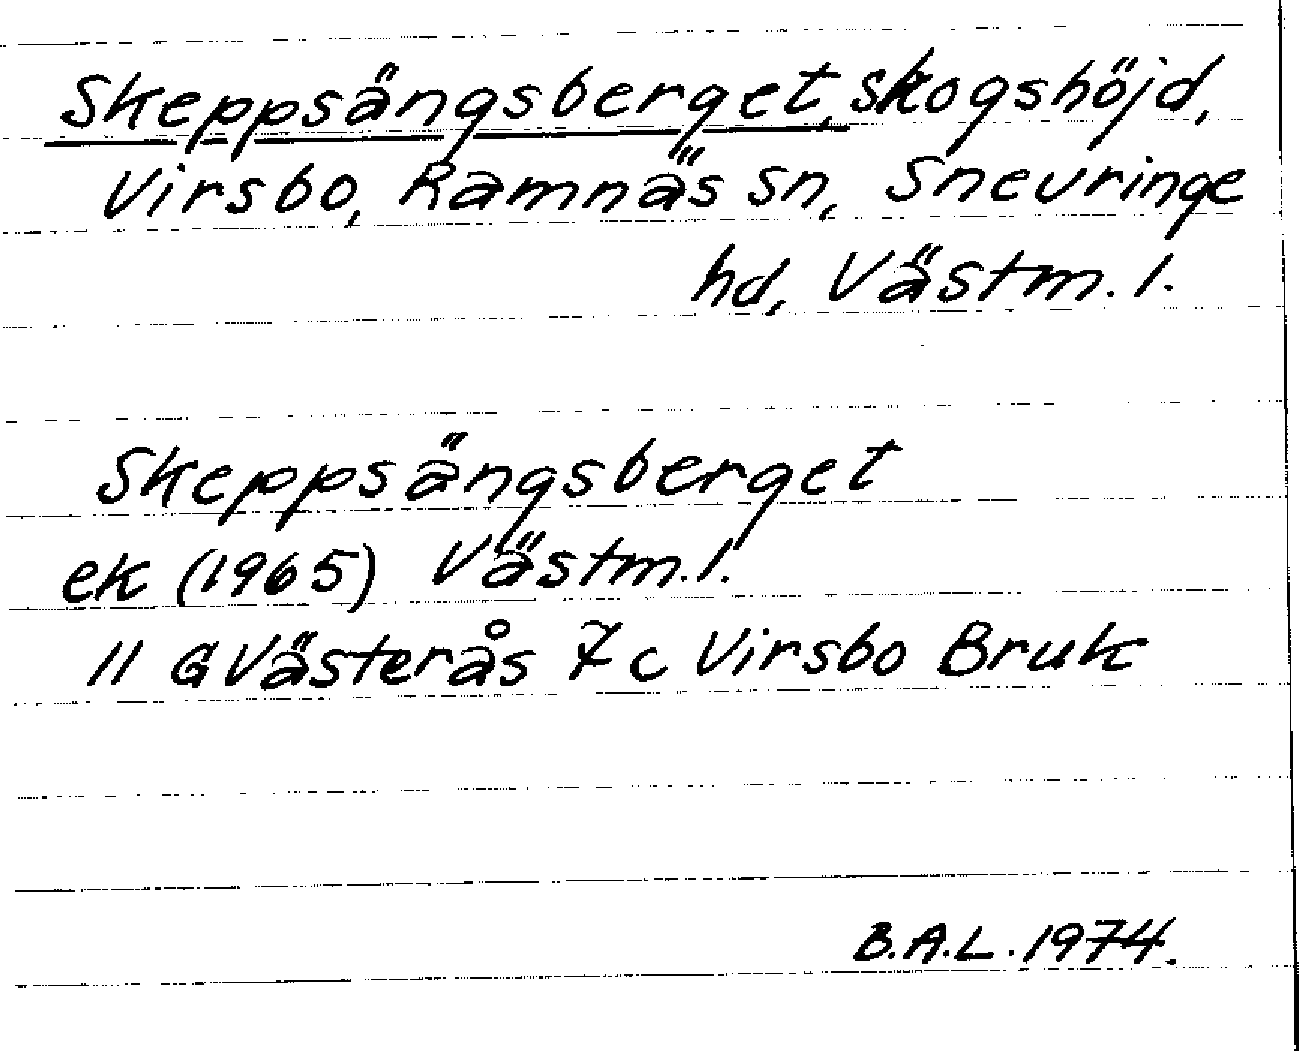 Skeppsängsberget, skogshöjd,
Virsbo, Ramnäs sn, Snevringe
hd, Västm. l.
Skeppsängsberget
ek (1965) Västm. l.
11 G Västerås 7 c Virsbo Bruk
B.A.L. 1974.